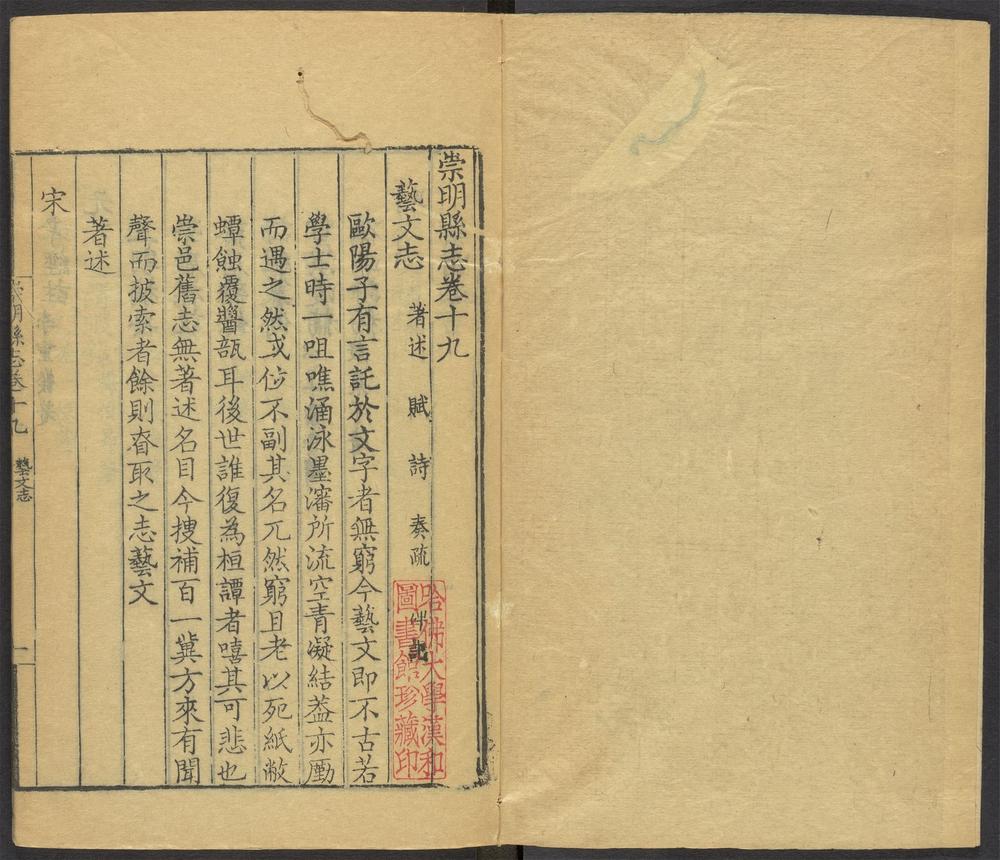 崇明縣志卷十九
藝文志 著述 賦 詩 奏疏 記
歐陽子有言託於文字者無窮今藝文即不古若
學士時一咀嚼涌泳墨瀋所流空青凝結葢亦厪
而遇之然或份不副其名兀然窮且老以死紙敝
蟫蝕覆醬瓿耳後世誰復為桓譚者嘻其可悲也
崇邑舊志無著述名目今搜補百一冀方來有聞
聲而披索者餘則㫺取之志藝文
著述
宋
崇明縣志卷十九 藝文志 一
哈佛大學漢和
圖書館珍藏印